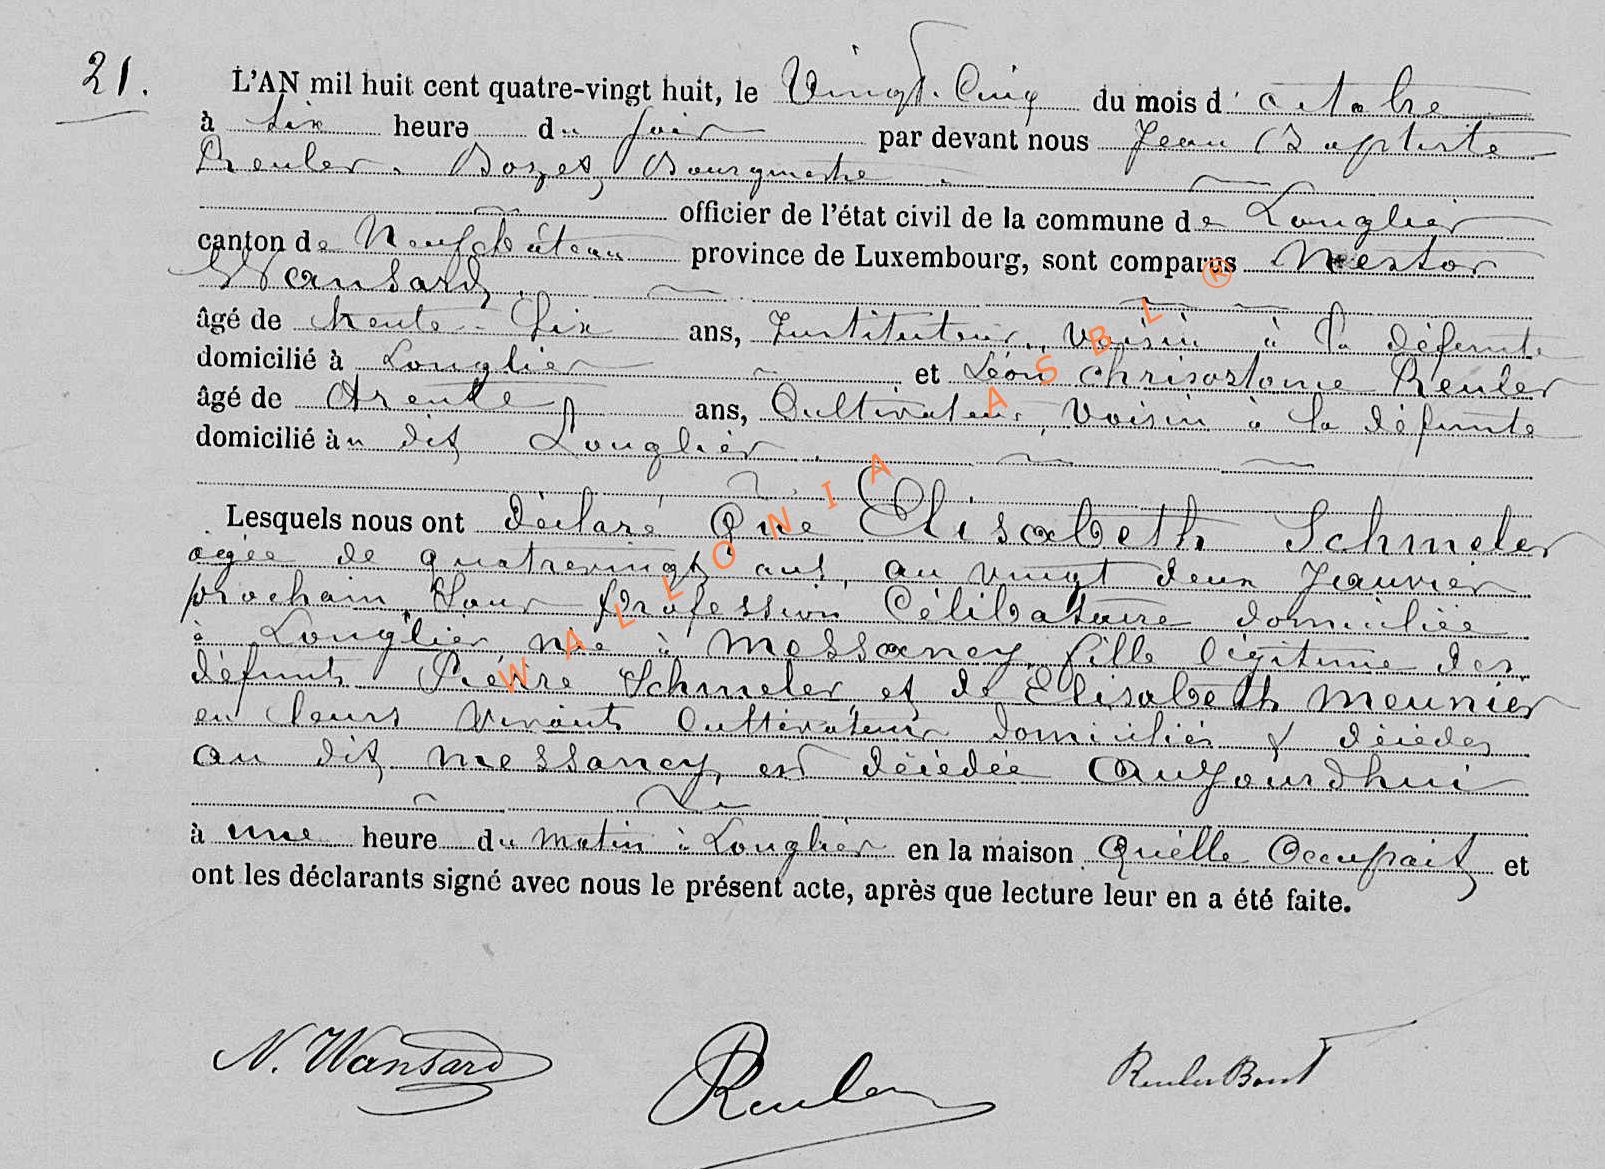 21.
L'AN mil huit cent quatre-vingt huit, le Vingt-Cinq du mois d'octobre
à six heure du soir par devant nous Jean Baptiste
Reuler Bourgmestre
officier de l'état civil de la commune de Longlier
canton de Neufchâteau province de Luxembourg, sont comparus Nestor
Wansard
âgé de trente-six ans, Instituteur, voisin à la défunte
domicilié à Longlier et Léon Chrisostome Reuler
âgé de trente ans, Cultivateur, voisin à la défunte
domicilié à u dit Longlier.
Lesquels nous ont déclaré Que Elisabeth Schmeler
agée de quatrevingt ans, au vingt deux Janvier
prochain, Sans profession Célibataire domiciliée
à Longlier, née à Messancy, fille légitime des
défunts Piérre Schmeler, et de Elisabeth Meunier
en leurs vivants Cultivateurs domiciliés & décédés
au dit Messancy, est décédée aujourdhui
à une heure du matin à Longlier en la maison Qu'elle Occupait et
ont les déclarants signé avec nous le présent acte, après que lecture leur en a été faite.
N. Wansard Reuler Reuler
WALLONIA ASBL ®